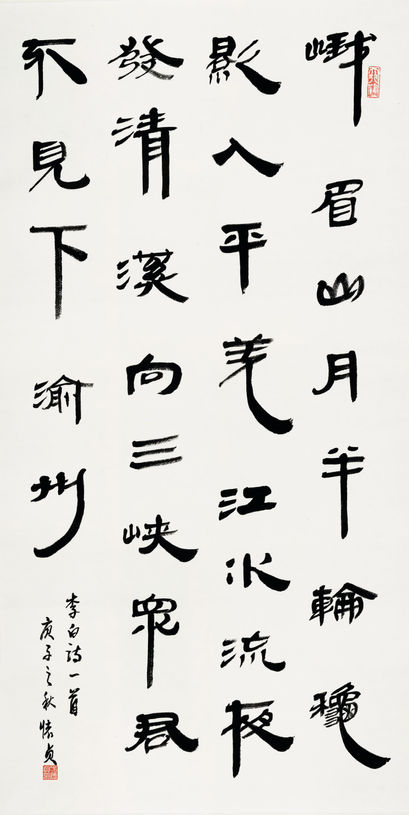 峨眉山月半輪龝
影入平羌江水流夜
發清溪向三峽君
不見下渝州
李白詩一首
庚子之秋懷貞